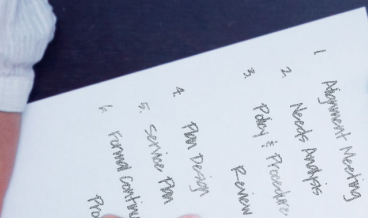 1. Alignment Meeting
2. Needs Analysis
3. Policy & Procedure
Review
4. Plan Design
5. Service Plan
6. Formal Continu
Pro